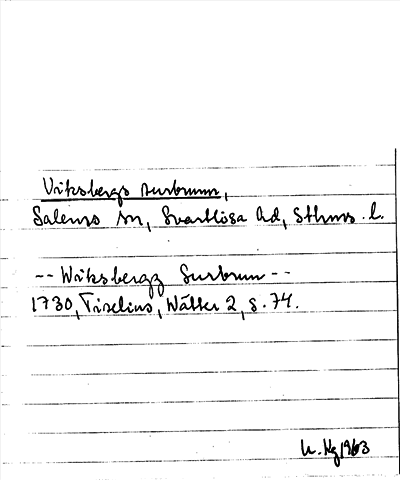 Viksbergs surbrunn,
Salems sn, Svartlösa hd, Sthms l.
-- Wiksbergz Surbrun --
1730, Tiselius, Wätter 2, s. 74.
1963